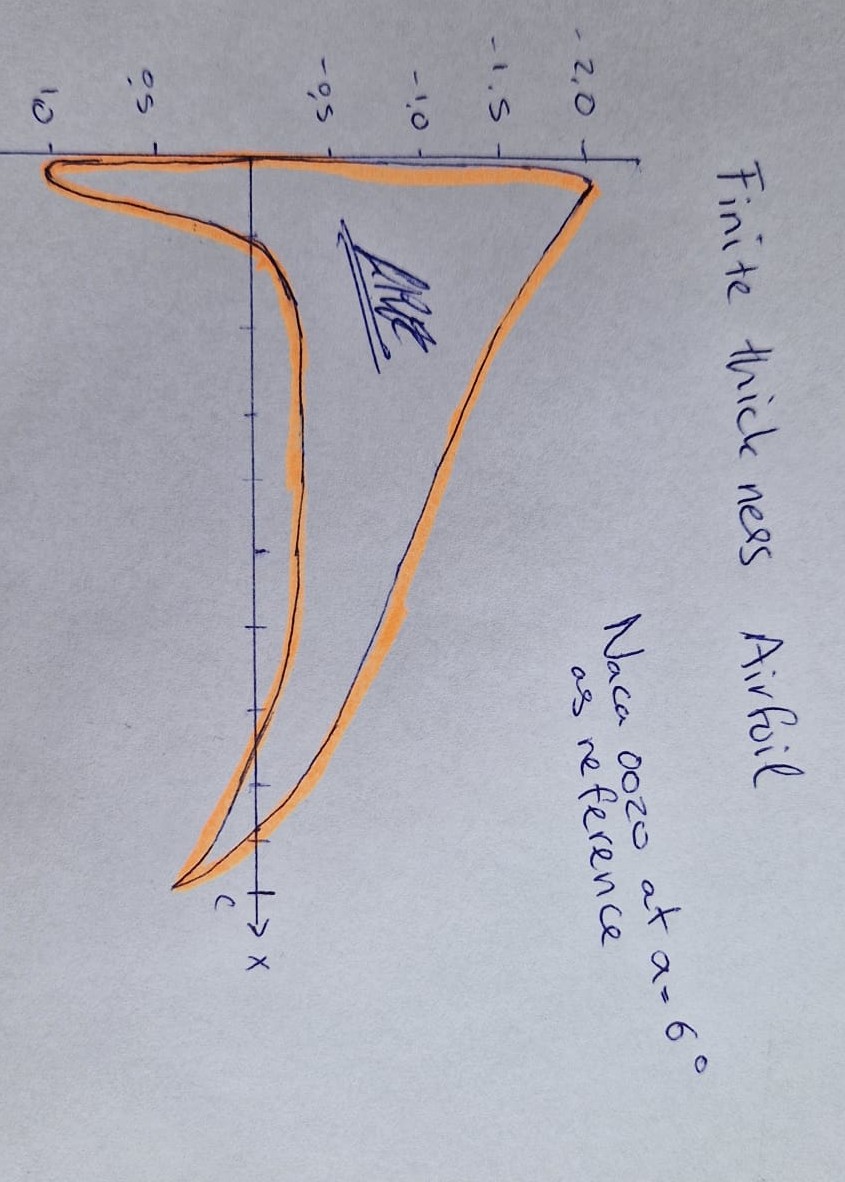 Finite thickness Airfoil
Naca 0020 at α= 6°
as reference
-2,0
-1.5
-1,0
-0,5
x
c
0,5
1,0